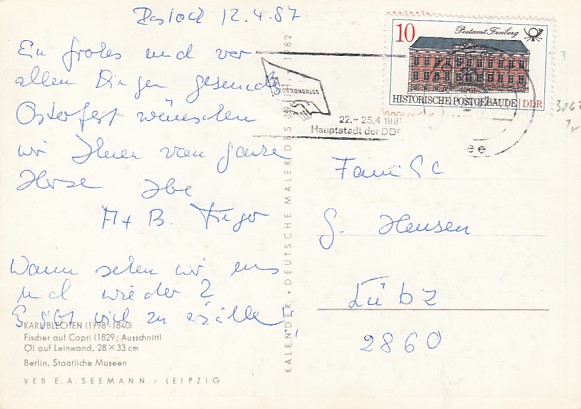 Rostock 12.4.87
Ein frohes und vor
allen Dingen gesundes
Osterfest wünschen
wir Ihnen von ganzem
Herzen Ihre
A + B.
Wann sehen wir uns
mal wieder?
Es gibt viel zu erzählen!
KARL BLECHEN (1798-1840)
Fischer auf Capri (1829; Ausschnitt)
Öl auf Leinwand, 28 × 33 cm
Berlin, Staatliche Museen
VEB E. A. SEEMANN · LEIPZIG
KALENDER · DEUTSCHE MALER DES 1982
22.-25.4.198
Hauptstadt der DDR
10
Postamt Freiberg
HISTORISCHE POSTGEBÄUDE DDR
Familie
G. Hensen
Lübz
2860